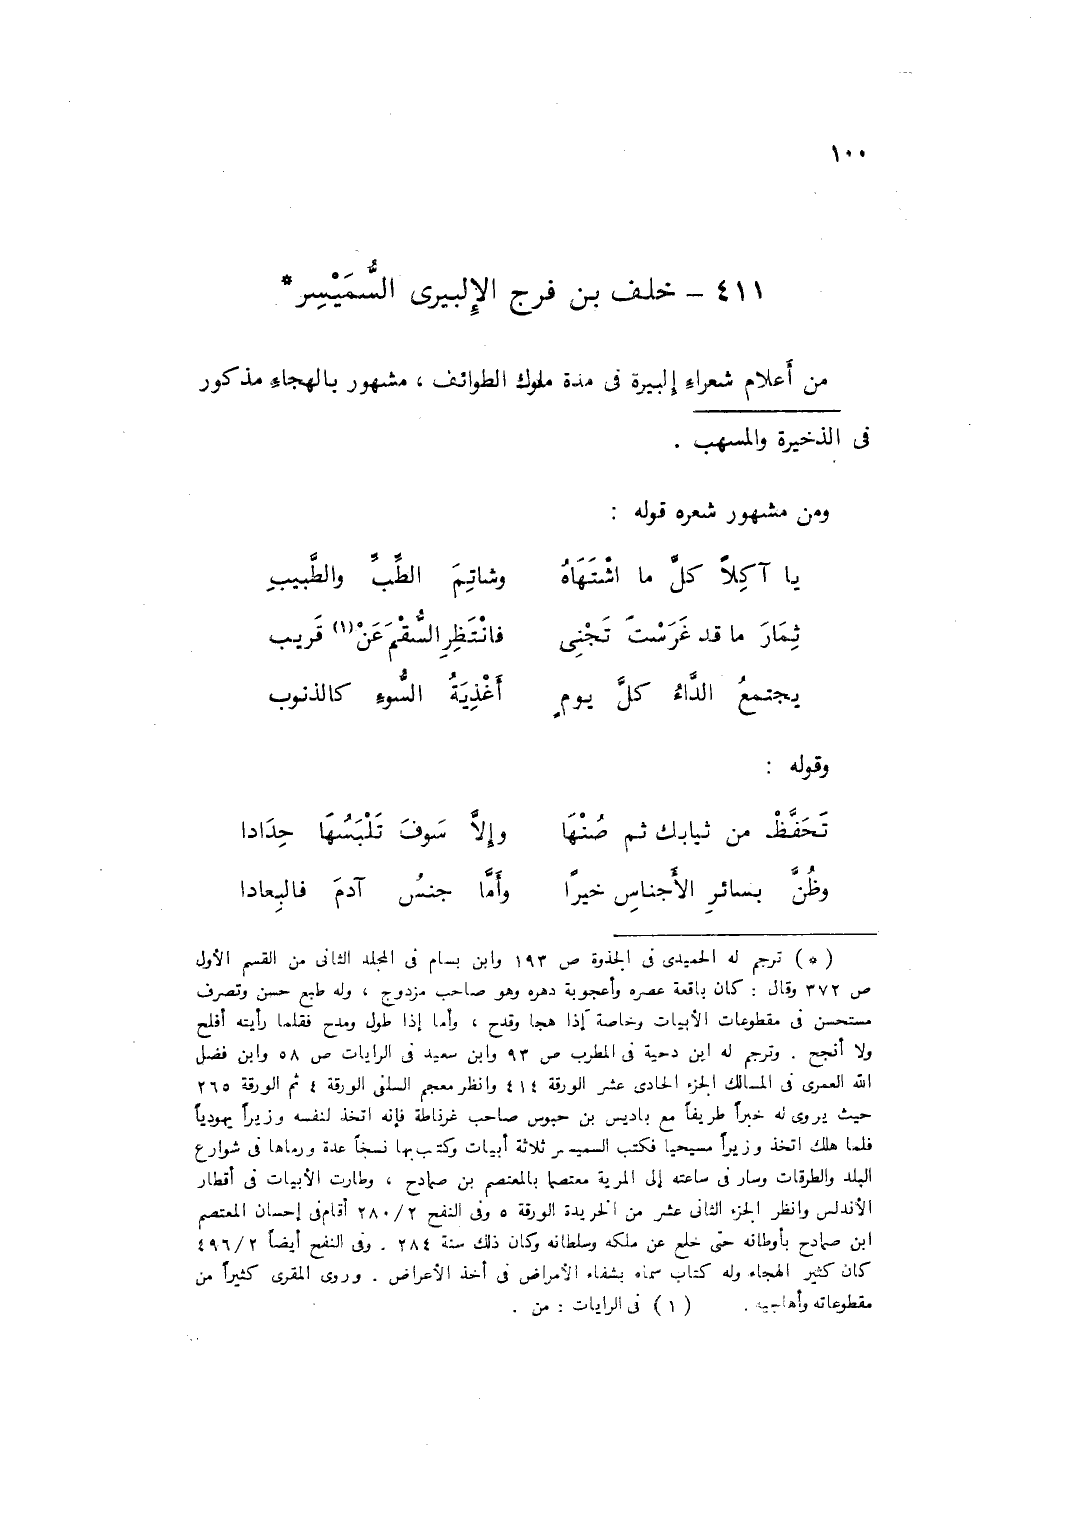 ١٠٠
٤١١ – خلف بن فرج الإِلبيرى السُّمَيْسِر*
من أَعلام شعراءِ إِلبيرة فى مدة ملوك الطوائف ، مشهور بالهجاءِ مذكور
فى الذخيرة والمسهب .
ومن مشهور شعره قوله :
يا آكِلاً كلَّ ما اشْتَهَاهُ وشاتِمَ الطِّبِّ والطَّبيبِ
ثِمَارَ ما قد غَرَسْتَ تَجْنِى فانْتَظِرِ السُّقْمَ عَنْ (١) قَريب
يجتمعُ الدَّاءُ كلَّ يومٍ أَغْذِيَةُ السُّوءِ كالذنوب
وقوله :
تَحَفَّظْ من ثيابك ثم صُنْهَا وإِلاَّ سَوفَ تَلْبَسُهَا حِدَادا
وظُنَّ بسائرِ الأَجناسِ خيرًا وأَمَّا جنسُ آدمَ فالبِعادا
(*) ترجم له الحميدى فى الجذوة ص ١٩٣ وابن بسام فى المجلد الثانى من القسم الأول
ص ٣٧٢ وقال : كان باقعة عصره وأعجوبة دهره وهو صاحب مزدوج ، وله طبع حسن وتصرف
مستحسن فى مقطوعات الأبيات وخاصة إذا هجا وقدح ، وأما إذا طول ومدح فقلما رأيته أفلح
ولا أنجح . وترجم له ابن دحية فى المطرب ص ٩٣ وابن سعيد فى الرايات ص ٥٨ وابن فضل
الله العمرى فى المسالك الجزء الحادى عشر الورقة ٤١٤ وانظر معجم السلفى الورقة ٤ ثم الورقة ٢٦٥
حيث يروى له خبراً طريفاً مع باديس بن حبوس صاحب غرناطة فإنه اتخذ لنفسه وزيراً يهودياً
فلما هلك اتخذ وزيراً مسيحيا فكتب السميسر ثلاثة أبيات وكتب بها نسخاً عدة ورماها فى شوارع
البلد والطرقات وسار فى ساعته إلى المرية معتصما بالمعتصم بن صمادح ، وطارت الأبيات فى أقطار
الأندلس وانظر الجزء الثانى عشر من الخريدة الورقة ٥ وفى النفح ٢٨٠/٢ أقام فى إحسان المعتصم
ابن صمادح بأوطانه حتى خلع عن ملكه وسلطانه وكان ذلك سنة ٢٨٤ . وفى النفح أيضاً ٤٩٦/٢
كان كثير الهجاء وله كتاب سماه بشفاء الأمراض فى أخذ الأعراض . وروى المقرى كثيراً من
مقطوعاته وأهاجيه . (١) فى الرايات : من .